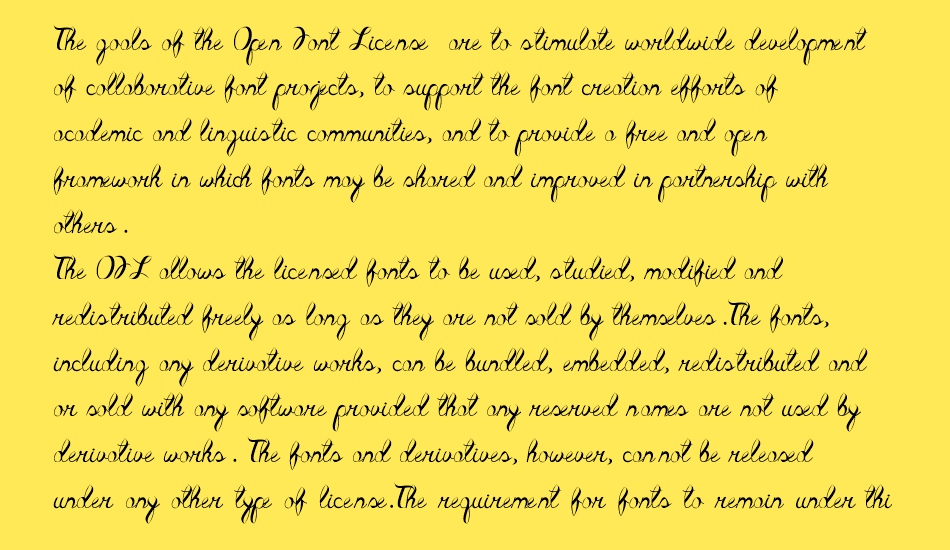 The goals of the Open Font License are to stimulate worldwide development
of collaborative font projects, to support the font creation efforts of
academic and linguistic communities, and to provide a free and open
framework in which fonts may be shared and improved in partnership with
others .
The OFL allows the licensed fonts to be used, studied, modified and
redistributed freely as long as they are not sold by themselves .The fonts,
including any derivative works, can be bundled, embedded, redistributed and
or sold with any software provided that any reserved names are not used by
derivative works . The fonts and derivatives, however, cannot be released
under any other type of license.The requirement for fonts to remain under thi